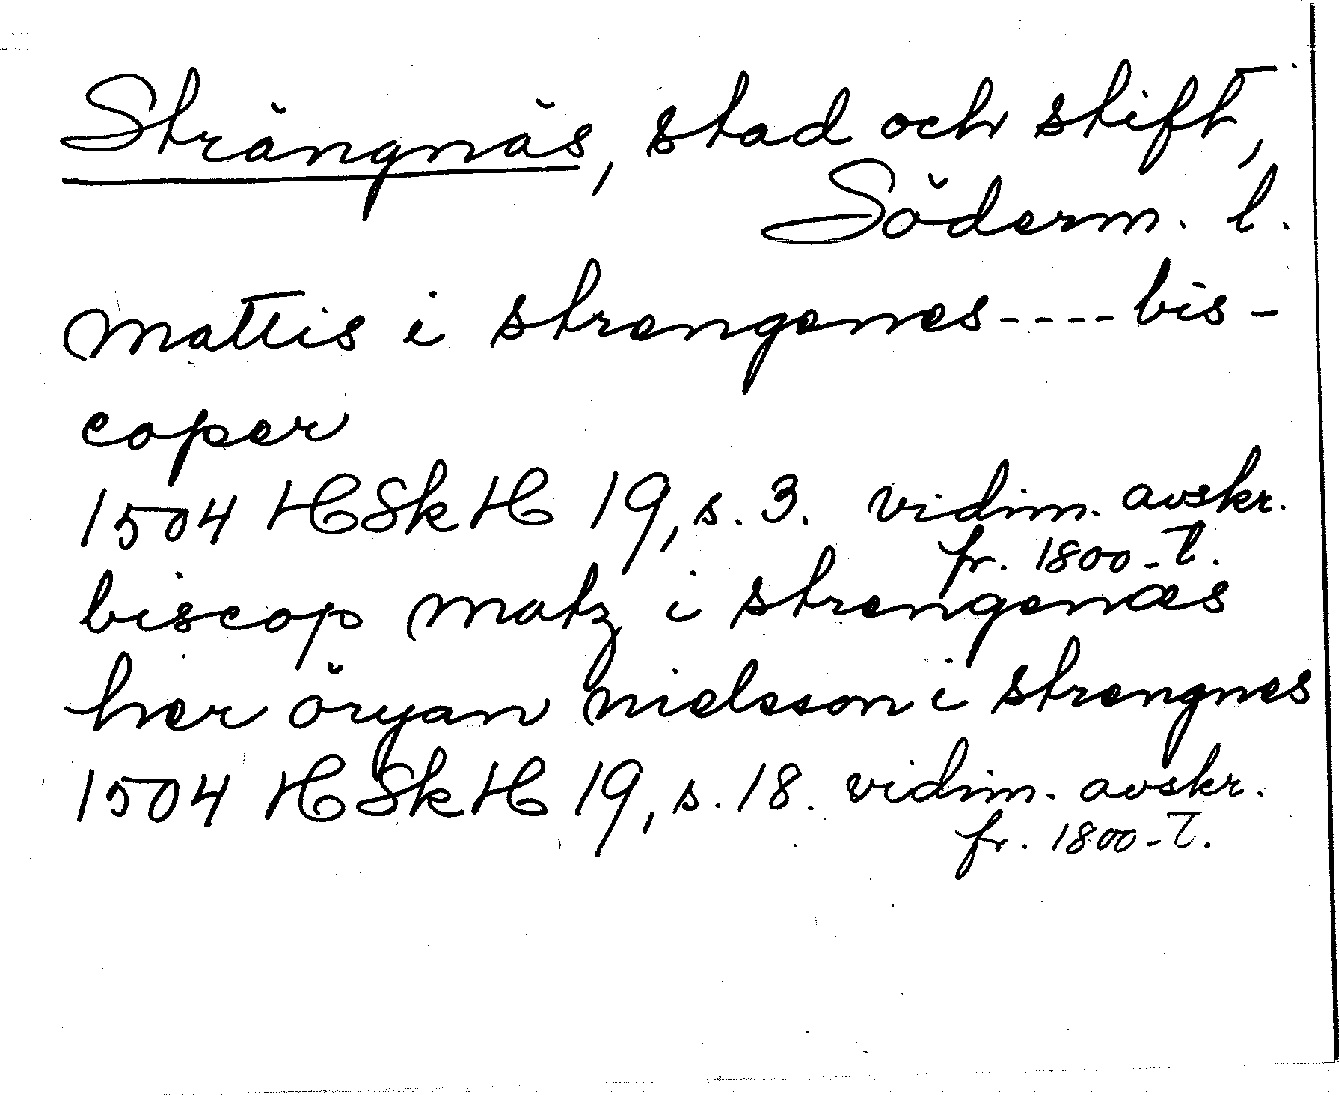 Strängnäs, stad och stift,
Söderm. l.
mattis i strengenes----bis-
coper
1504 HSkH 19, s. 3. vidim. avskr.
fr. 1800-t.
biscop matz i strengenæs
her öryan nielsson i strengnes
1504 HSkH 19, s. 18. vidim. avskr.
fr. 1800-t.